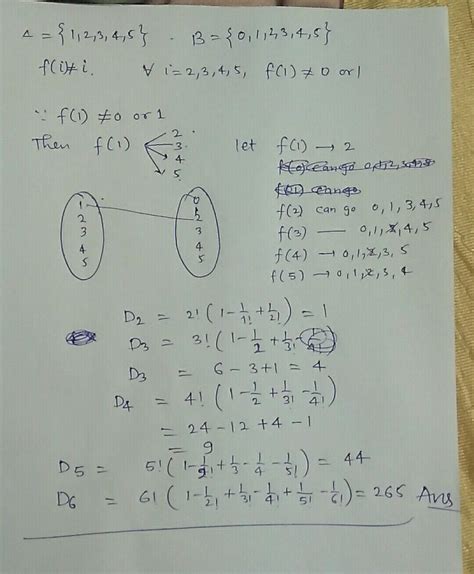 A = {1,2,3,4,5} . B = {0,1,2,3,4,5}
f(i)≠i. ∀ i=2,3,4,5, f(1) ≠ 0 or 1
∵ f(1) ≠ 0 or 1
Then f(1) 2 3 4 5
let f(1) → 2
f(2) can go 0,1,3,4,5
f(3) — 0,1,2,4,5
f(4) → 0,1,2,3,5
f(5) → 0,1,2,3,4
1 2 3 4 5
0 1 2 3 4 5
D2 = 2! (1 - 1/1! + 1/2!) = 1
D3 = 3! (1 - 1/2 + 1/3! - 1/4!)
D3 = 6 - 3 + 1 = 4
D4 = 4! (1 - 1/2 + 1/3! - 1/4!)
= 24 - 12 + 4 - 1
= 9
D5 = 5! (1 - 1/2! + 1/3 - 1/4 - 1/5!) = 44
D6 = 6! (1 - 1/2! + 1/3! - 1/4! + 1/5! - 1/6!) = 265 Ans